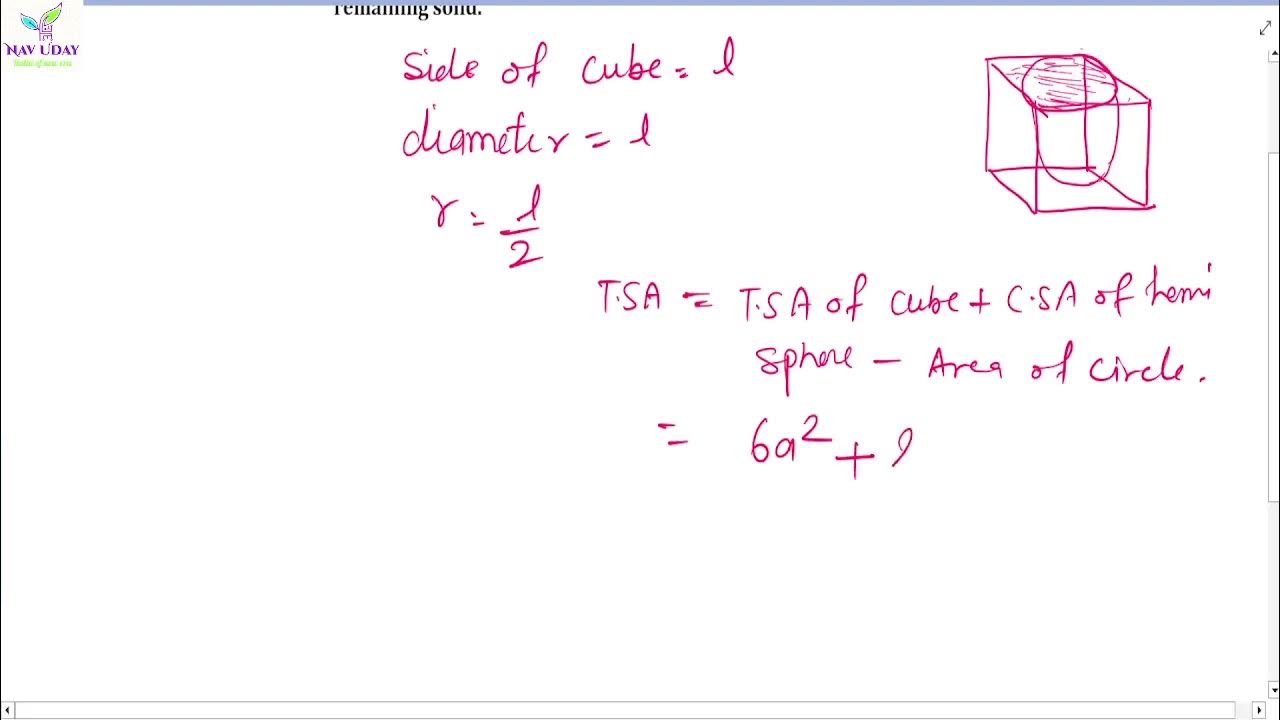 remaining solid.
NAV UDAY
Side of cube = l
diameter = l
r = l/2
T.SA = T.SA of cube + C.SA of hemi
sphere – Area of circle.
= 6a² +